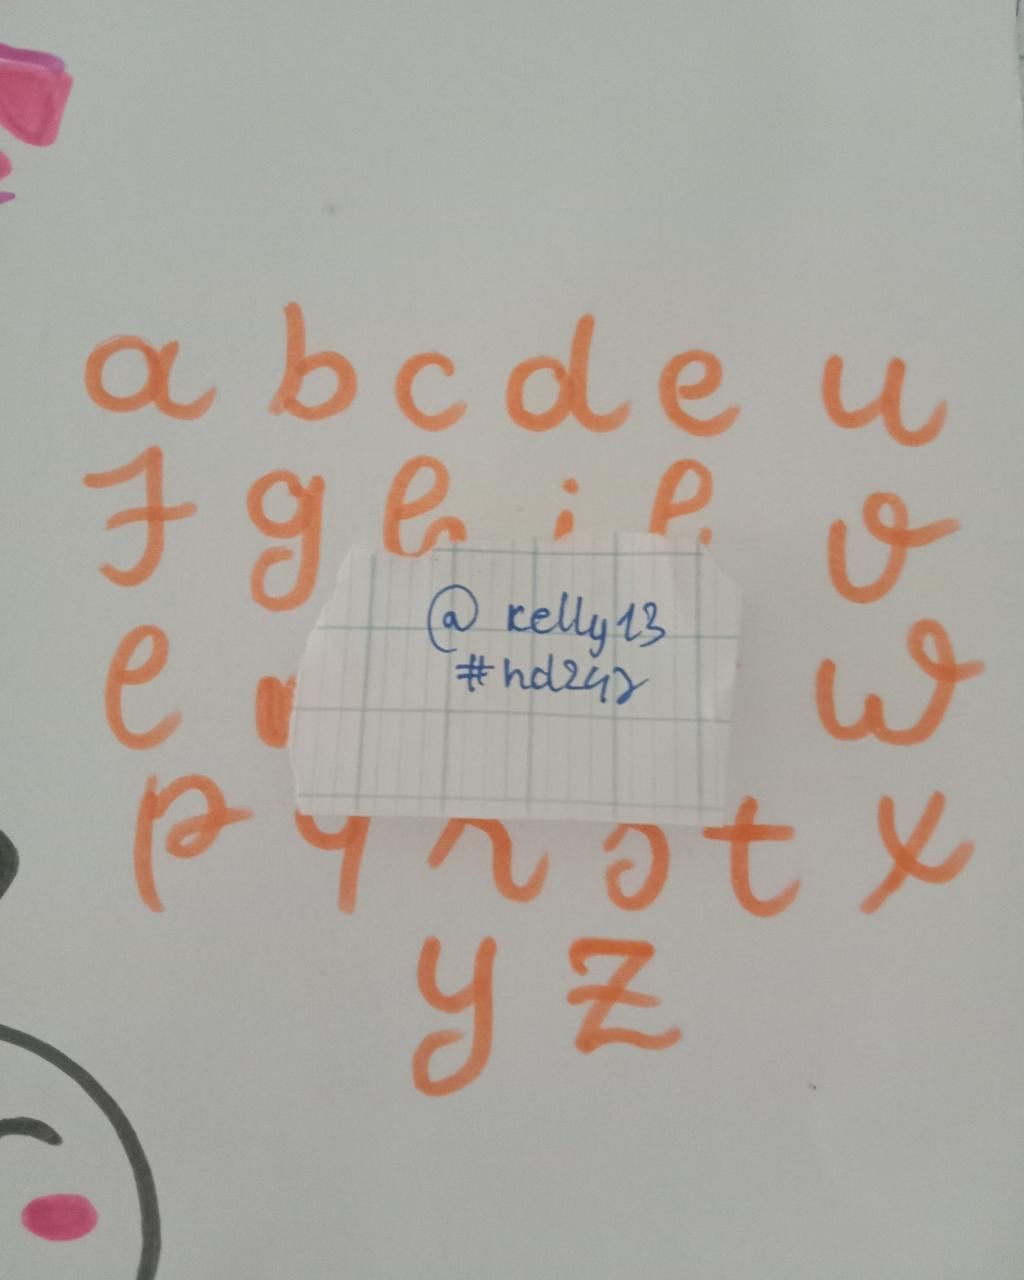 a b c d e u
f g h i v
l w
p q r s t x
y z
@ kelly13
#hd242